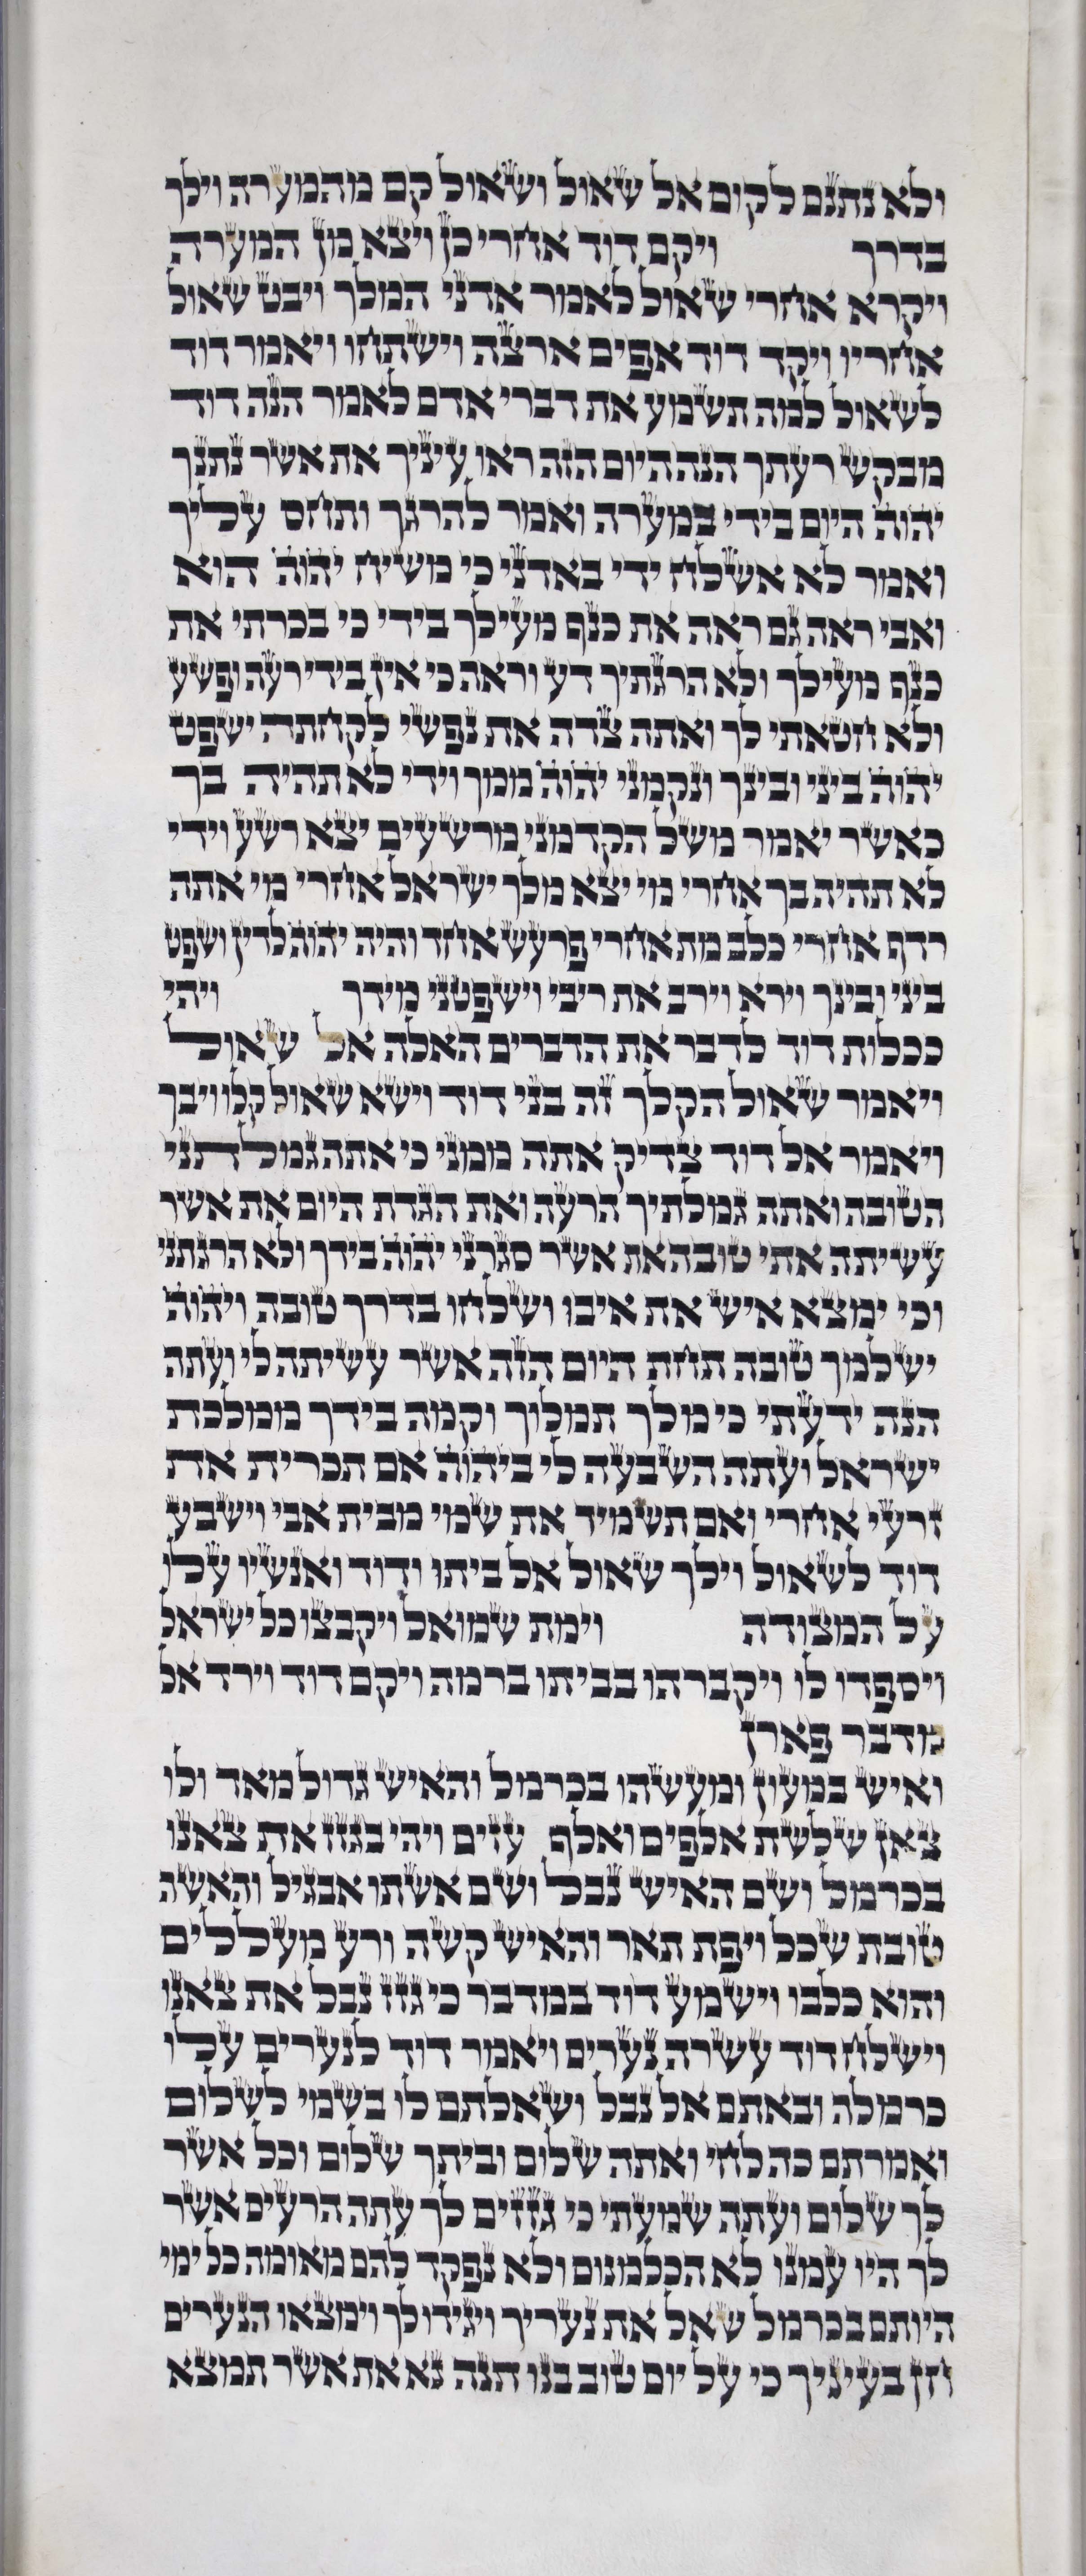 ולא נתנם לקום אל שאול ושאול קם מהמערה וילך
בדרך ויקם דוד אחרי כן ויצא מן המערה
ויקרא אחרי שאול לאמור אדני המלך ויבט שאול
אחריו ויקד דוד אפים ארצה וישתחו ויאמר דוד
לשאול למה תשמע את דברי אדם לאמר הנה דוד
מבקש רעתך הנה היום הזה ראו עיניך את אשר נתנך
יהוה היום בידי במערה ואמר להרגך ותחס עליך
ואמר לא אשלח ידי באדני כי משיח יהוה הוא
ואבי ראה גם ראה את כנף מעילך בידי כי בכרתי את
כנף מעילך ולא הרגתיך דע וראה כי אין בידי רעה ופשע
ולא חטאתי לך ואתה צדה את נפשי לקחתה ישפט
יהוה ביני ובינך ונקמני יהוה ממך וידי לא תהיה בך
כאשר יאמר משל הקדמני מרשעים יצא רשע וידי
לא תהיה בך אחרי מי יצא מלך ישראל אחרי מי אתה
רדף אחרי כלב מת אחרי פרעש אחד והיה יהוה לדין ושפט
ביני ובינך וירא וירב את ריבי וישפטני מידך ויהי
ככלות דוד לדבר את הדברים האלה אל שאול
ויאמר שאול הקלך זה בני דוד וישא שאול קלו ויבך
ויאמר אל דוד צדיק אתה ממני כי אתה גמלתני
הטובה ואתה גמלתיך הרעה ואת הגדת היום את אשר
עשיתה אתי טובה את אשר סגרני יהוה בידך ולא הרגתני
וכי ימצא איש את איבו ושלחו בדרך טובה ויהוה
ישלמך טובה תחת היום הזה אשר עשיתה לי ועתה
הנה ידעתי כי מלך תמלוך וקמה בידך ממלכת
ישראל ועתה השבעה לי ביהוה אם תכרית את
זרעי אחרי ואם תשמיד את שמי מבית אבי וישבע
דוד לשאול וילך שאול אל ביתו ודוד ואנשיו עלו
על המצודה וימת שמואל ויקבצו כל ישראל
ויספדו לו ויקברהו בביתו ברמה ויקם דוד וירד אל
מדבר פארן
ואיש במעון ומעשהו בכרמל והאיש גדול מאד ולו
צאן שלשת אלפים ואלף עזים ויהי בגזז את צאנו
בכרמל ושם האיש נבל ושם אשתו אבגיל והאשה
טובת שכל ויפת תאר והאיש קשה ורע מעללים
והוא כלבו וישמע דוד במדבר כי גזז נבל את צאנו
וישלח דוד עשרה נערים ויאמר דוד לנערים עלו
כרמלה ובאתם אל נבל ושאלתם לו בשמי לשלום
ואמרתם כה לחי ואתה שלום וביתך שלום וכל אשר
לך שלום ועתה שמעתי כי גזזים לך עתה הרעים אשר
לך היו עמנו לא הכלמנום ולא נפקד להם מאומה כל ימי
היותם בכרמל שאל את נעריך ויגידו לך וימצאו הנערים
חן בעיניך כי על יום טוב בנו תנה נא את אשר תמצא